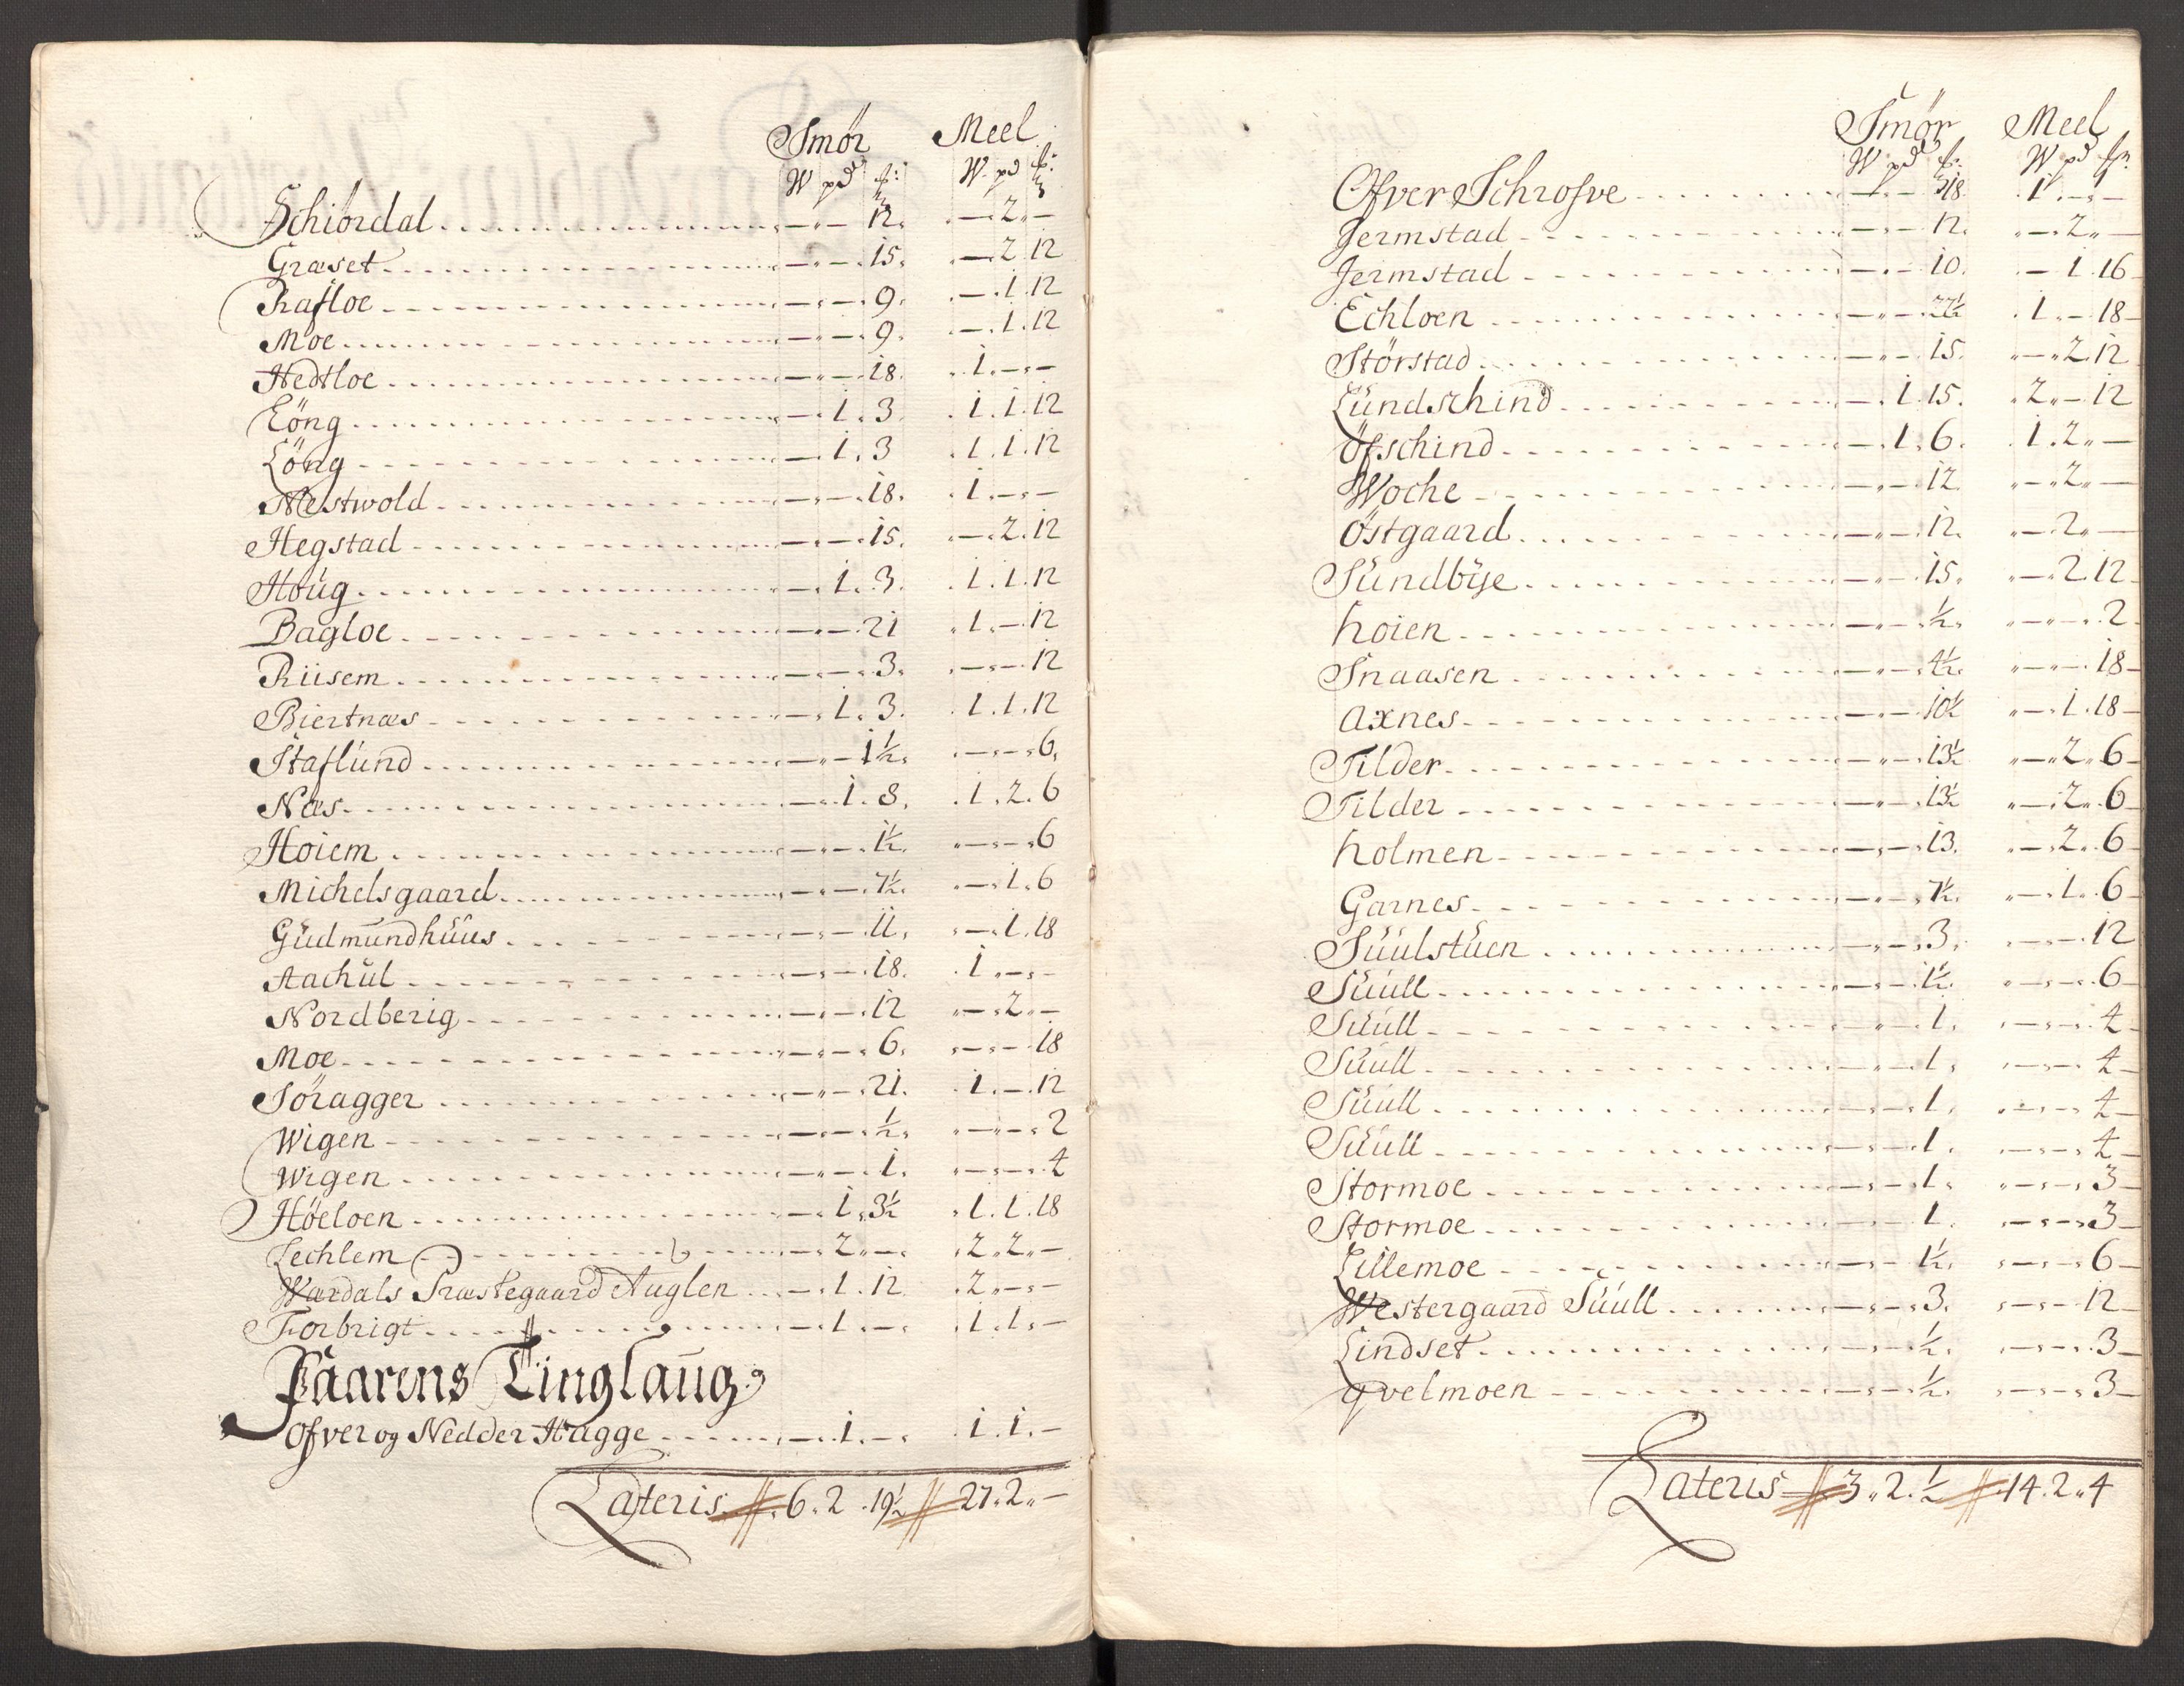 Smör Meel
W pd ℔: W. pd ℔:
Schiördal - - 12. - 2. -
Græset - - 15. - 2. 12
Rafloe - - 9. - 1. 12
Moe - - 9. - 1. 12
Hedtloe - - 18. 1. - -
Löng - 1. 3. 1. 1. 12
Löng - 1. 3 1. 1. 12
Nestwold - - 18. 1. - -
Hegstad - - 15. - 2. 12
Houg - 1. 3. 1. 1. 12
Bagloe - - 21 1. - 12
Riisem - - 3. - - 12
Biertnæs - 1. 3. 1. 1. 12
Staflund - - 1½. - - 6.
Næs - 1. 8. 1. 2. 6
Hoiem - - 1½. - - 6
Michelsgaard - - 7½. - 1. 6
Gudmundhuus - - 11. - 1. 18
Aachul - - 18. 1. - -
Nordberig - - 12 - 2. -
Moe - - 6. - - 18
Söragger - - 21. 1. - 12
Wigen - - ½. - - 2
Wigen - - 1. - - 4
Höeloen - 1. 3½ 1. 1. 18
Lechlem - 2. - 2. 2. -
Wærdals Præstegaard Auglen - 1. 12 2. - -
Forbrigt - 1. - 1. 1. -
Paarens Tinglaug
Ofver og Nedder Hagge - 1. - 1. 1. -
Lateris 6. 2. 19½ 27. 2. -
Smör Meel
W pd ℔: W pd ℔
Ofver Schrofve - - 18. 1. - -
Jermstad - - 12. - 2. -
Jermstad - - 10. - 1. 16
Echloen - - 22½ 1. - 18
Störstad - - 15. - 2. 12
Lundschind - 1. 15. 2. - 12
Öfschind - 1. 6. 1. 2. -
Woche - - 12. - 2. -
Östgaard - - 12. - 2. -
Sundbye - - 15. - 2. 12
hoien - - ½. - - 2
Snaasen - - 4½. - - 18
Axnes - - 10½ - 1. 18
Tilder - - 13½ - 2. 6
Tilder - - 13½ - 2. 6
holmen - - 13. - 2. 6
Garnes - - 7½. - 1. 6
Suulstuen - - 3. - - 12
Suull - - 1½. - - 6
Suull - - 1. - - 4
Suull - - 1. - - 4
Suull - - 1. - - 4
Suull - - 1. - - 4
Stormoe - - 1. - - 3
Stormoe - - 1. - - 3
Lillemoe - - 1½. - - 6
Westergaard Suull - - 3. - - 12
Lindset - - ½. - - 3
qvelmoen - - ½. - - 3
Lateris 3. 2. ½ 14. 2. 4